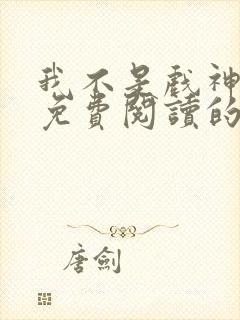 我不是戲神
免費閱讀的
唐劍